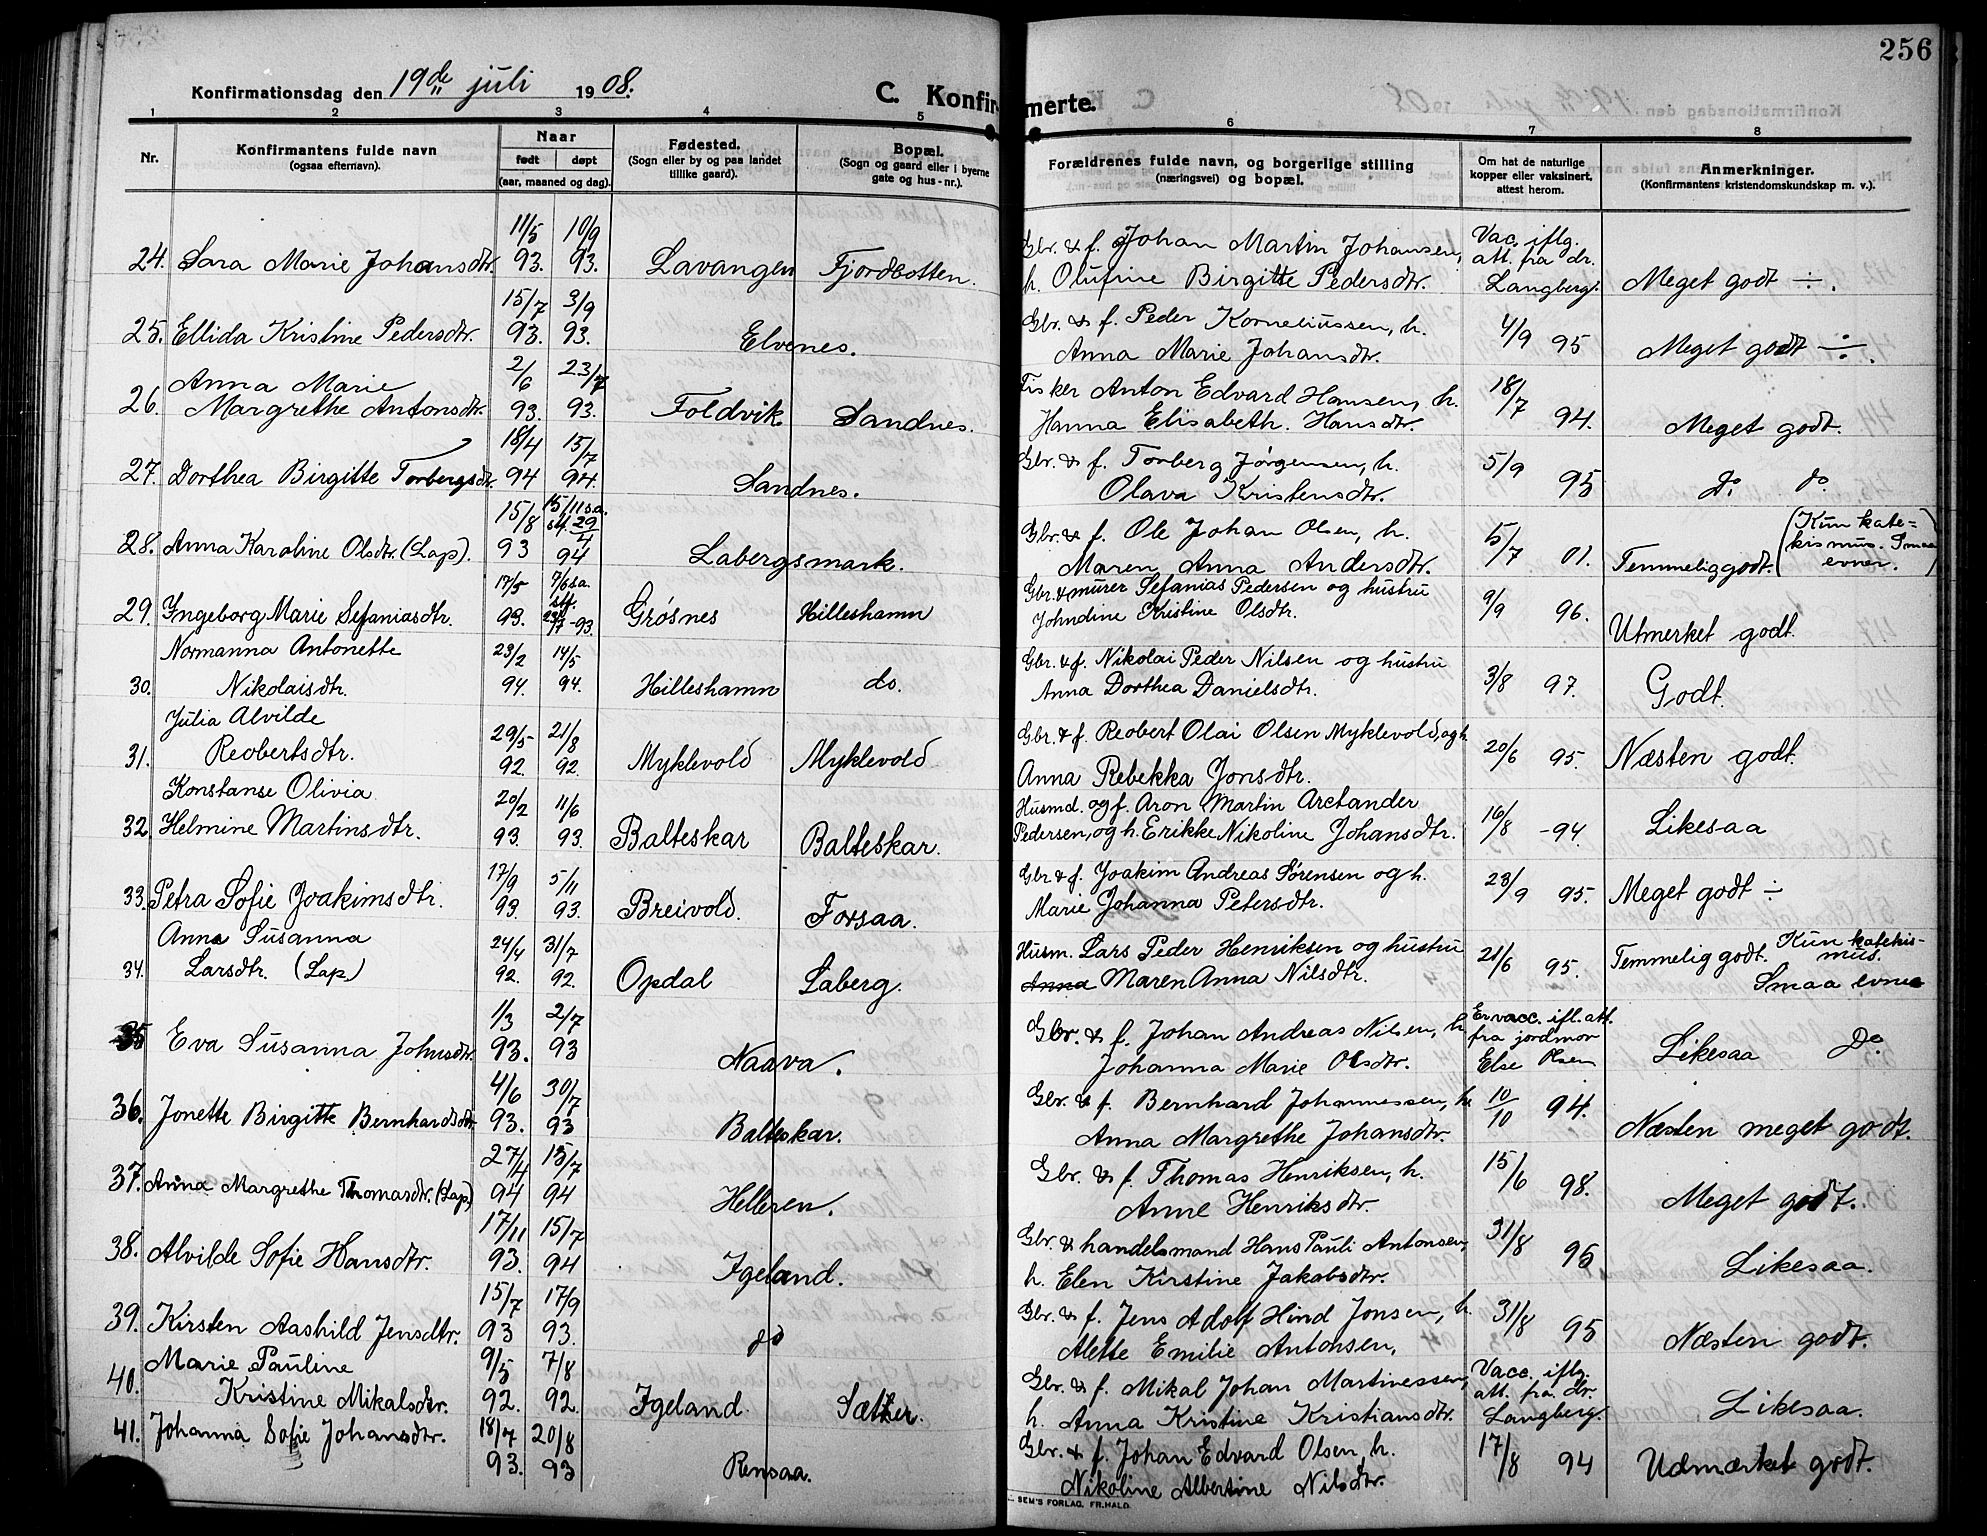 256
Konfirmationsdag den 19de juli 1908.
C. Konfirmerte.
1 2 3 4 5 6 7 8
Nr.
Konfirmantens fulde navn
(ogsaa efternavn).
Naar
født døpt
(aar, maaned og dag).
Fødested.
(Sogn eller by og paa landet
tillike gaard).
Bopæl.
(Sogn og gaard eller i byerne
gate og hus-nr.).
Forældrenes fulde navn, og borgerlige stilling
(næringsvei) og bopæl.
Om hat de naturlige
kopper eller vaksinert,
attest herom.
Anmerkninger.
(Konfirmantens kristendomskundskap m. v.).
11/5 10/9 Gbr. & f. Johan Martin Johansen, Vac. iflg.
att. fra dr.
24. Sara Marie Johansdtr. 93. 93. Lavangen Fjordbotten. h. Olufine Birgitte Pedersdtr. Langberg. Meget godt ÷.
15/7 3/9 Gbr. & f. Peder Korneliussen, h. 4/9 95
25. Ellida Kristine Pedersdtr. 93. 93. Elvenes. Anna Marie Johansdtr. Meget godt ÷.
Anna Marie 2/6 23/7 Fisker Anton Edvard Hansen, h. 18/7 94.
26. Margrethe Antonsdtr. 93. 93. Foldvik Sandnes. Hanna Elisabeth Hansdtr. Meget godt.
18/4 15/7 Gbr. & f. Torberg Jørgensen, h. 5/9 95
27. Dorthea Birgitte Torbergsdtr. 94 94. Sandnes. Olava Kristensdtr. do. do.
15/8 15/11 sa. Gbr. & f. Ole Johan Olsen, h. 5/7 01. (Kun kate-
st. 29/4 kismus. Smaa
28. Anna Karoline Olsdtr. (Lap). 93 94 Labergsmark. Maren Anna Andersdtr. Temmelig godt. evner.)
17/5 7/6 sa. Gbr. & murer Sefanias Pedersen og hustru 9/9 96.
st.
29. Ingeborg Marie Sefaniasdtr. 93. 23/7-93. Grøsnes Hilleshamn Johndine Kristine Olsdtr. Utmerket godt.
Normanna Antonette 23/2 14/5 Gbr. & f. Nikolai Peder Nilsen og hustru
30. Nikolaisdtr. 94. 94. Hilleshamn do. Anna Dorthea Danielsdtr. 3/8 97. Godt.
Julia Alvilde 29/5 21/8 Gbr. & f. Reobert Olai Olsen Myklevold, og h.
31. Reobertsdtr. 92. 92. Myklevold Myklevold Anna Rebekka Jonsdtr. 20/6 95. Næsten godt.
Konstanse Olivia 20/2 11/6 Husmd. og f. Aron Martin Arctander
32. Helmine Martinsdtr. 93. 93. Balteskar Balteskar. Pedersen, og h. Erikke Nikoline Johansdtr. 16/8 -94. Likesaa
17/9 5/11 Gbr & f. Joakim Andreas Sørensen og h.
33. Petra Sofie Joakimsdtr. 93. 93. Breivold. Forsaa. Marie Johanna Petersdtr. 23/9 95. Meget godt ÷
Anna Susanna 24/4 31/7 Husm. Lars Peder Henriksen og hustru Kun katekis-
34. Larsdtr. (Lap) 92. 92. Opdal Laberg. Anna Maren Anna Nilsdtr. 21/6 95. Temmelig godt. mus.
Smaa evner
1/3 2/7 Gbr. & f. Johan Andreas Nilsen, h. Er vacc. ifl. att.
fra jordmor
35 Eva Susanna Johnsdtr. 93. 93 Naava. Johanna Marie Olsdtr. Else Olsen Likesaa Do.
4/6 30/7 Gbr. & f. Bernhard Johannessen, h. 10/10 94.
36. Jonette Birgitte Bernhardsdtr. 93. 93 Balteskar. Anna Margrethe Johansdtr. Næsten meget godt.
27/4 15/7 Gbr. & f. Thomas Henriksen, h. 15/6 98.
37. Anna Margrethe Thomasdtr. (Lap) 94 94 Helleren. Anne Henriksdtr. Meget godt.
17/11 15/7 Gbr. & handelsmand Hans Pauli Antonsen, 31/8 95.
38. Alvilde Sofie Hansdtr. 93. 94 Igeland. h. Elen Kirstine Jakobsdtr. Likesaa.
15/7 17/9 Gbr. & f. Jens Adolf Hind Jonsen, h. 31/8 95
39. Kirsten Aashild Jensdtr. 93 93. do Alette Emilie Antonsen, Næsten godt.
Marie Pauline 9/5 7/8 Gbr. & f. Mikal Johan Martinessen, Vacc. iflg.
att. fra dr.
40. Kristine Mikalsdtr. 92. 92. Igeland. Sæther. h. Anna Kristine Kristiansdtr. Langberg. Likesaa.
41. Johanna Sofie Johansdtr. 18/7 20/8 Gbr. & f. Johan Edvard Olsen, h. 17/8 94
93. 93 Rensaa. Nikoline Albertine Nilsdtr. Udmærket godt.
SEM'S FORLAG. FR.HALD.